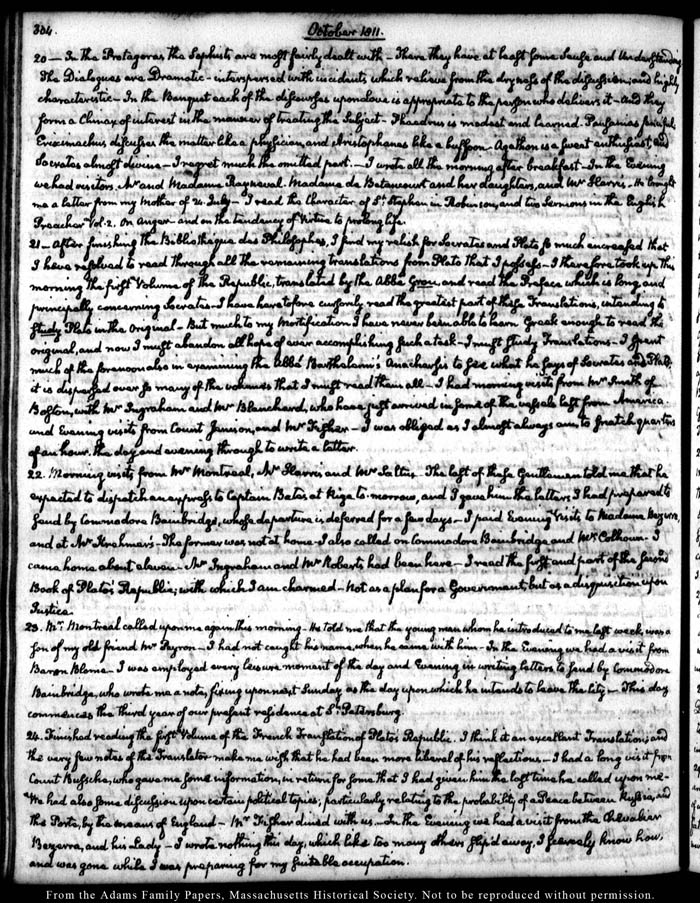 304.
October 1811.
20 — In the Protagoras the Sophists are most fairly dealt with — There they have at least some Sense and Understanding
The Dialogues are Dramatic — interspersed with incidents which relieve from the dryness of the discussion; and highly
characteristic — In the Banquet each of the discourses upon love is appropriate to the person who delivers it — And they
form a Climax of interest in the manner of treating the Subject — Phaedrus is modest and learned. Pausanias
Eriximachus discusses the matter like a physician, and Aristophanes like a buffoon — Agathon is a sweet enthusiast, and
Socrates almost divine — I regret much the omitted part. — I wrote all the morning after breakfast — In the Evening
we had visitors, Mr and Madame Rayneval. Madame de Betancourt and her daughters, and Mr Harris. He brought
me a letter from my Mother of 24. July — I read the Character of St Stephen in Robinson, and two Sermons in the English
Preacher Vol. 2. On Anger — and on the tendency of Virtue to prolong life.
21 — After finishing the Bibliotheque des Philosophes, I find my relish for Socrates and Plato so much encreased that
I have resolved to read through all the remaining translations from Plato that I possess — I therefore took up this
morning the first Volume of the Republic, translated by the Abbé Grou, and read the Preface which is long, and
principally concerning Socrates — I have heretofore cursorily read the greatest part of these Translations, intending to
study Plato in the Original — But much to my Mortification I have never been able to learn Greek enough to read the
original, and now I must abandon all hope of ever accomplishing such a task — I must study Translations — I spent
much of the forenoon also in examining the Abbé Barthelemi's Anacharsis to see what he says of Socrates and Plato;
it is dispersed over so many of the volumes that I must read them all — I had morning visits from Mr Smith of
Boston, with Mr Ingraham and Mr Blanchard, who have just arrived in some of the vessels last from America
and Evening visits from Count Jennison, and Mr Fisher — I was obliged as I almost always am to snatch quarters
of an hour, the day and evening through to write a letter.
22. Morning visits from Mr Montreal, Mr Harris and Mr Salter. The last of these Gentlemen told me that he
expected to dispatch an express to Captain Bates at Riga to-morrow, and I gave him the letters I had prepared to
send by Commodore Bainbridge, whose departure is deferred for a few days — I paid Evening Visits to Madame Bezerra,
and at Mr Krehmer's. The former was not at home — I also called on Commodore Bainbridge and Mr Colhoun — I
came home about eleven — Mr Ingraham and Mr Roberts had been here — I read the first and part of the second
Book of Plato's Republic; with which I am charmed — Not as a plan for a Government, but as a disquisition upon
Justice.
23. Mr Montreal called upon me again this morning — He told me that the young man whom he introduced to me last week, was a
son of my old friend Mr Peyron — I had not caught his name, when he came with him — In the Evening we had a visit from
Baron Blome — I was employed every leisure moment of the day and Evening in writing letters to send by Commodore
Bainbridge, who wrote me a note, fixing upon next Sunday as the day upon which he intends to leave the City — This day
commences the third year of our present residence at St Petersburg.
24. Finished reading the first Volume of the French Translation of Plato's Republic. I think it an excellent Translation; and
the very few notes of the Translator make me wish that he had been more liberal of his reflections — I had a long visit from
Count Bussche, who gave me some information, in return for some that I had given him the last time he called upon me —
We had also some discussion upon certain political topics; particularly relating to the probability of a Peace between Russia, and
the Porte, by the means of England — Mr Fisher dined with us — In the Evening we had a visit from the Chevalier
Bezerra, and his Lady — I wrote nothing this day, which like too many others slip'd away, I scarcely know how,
and was gone while I was preparing for my suitable occupation.
From the Adams Family Papers, Massachusetts Historical Society. Not to be reproduced without permission.